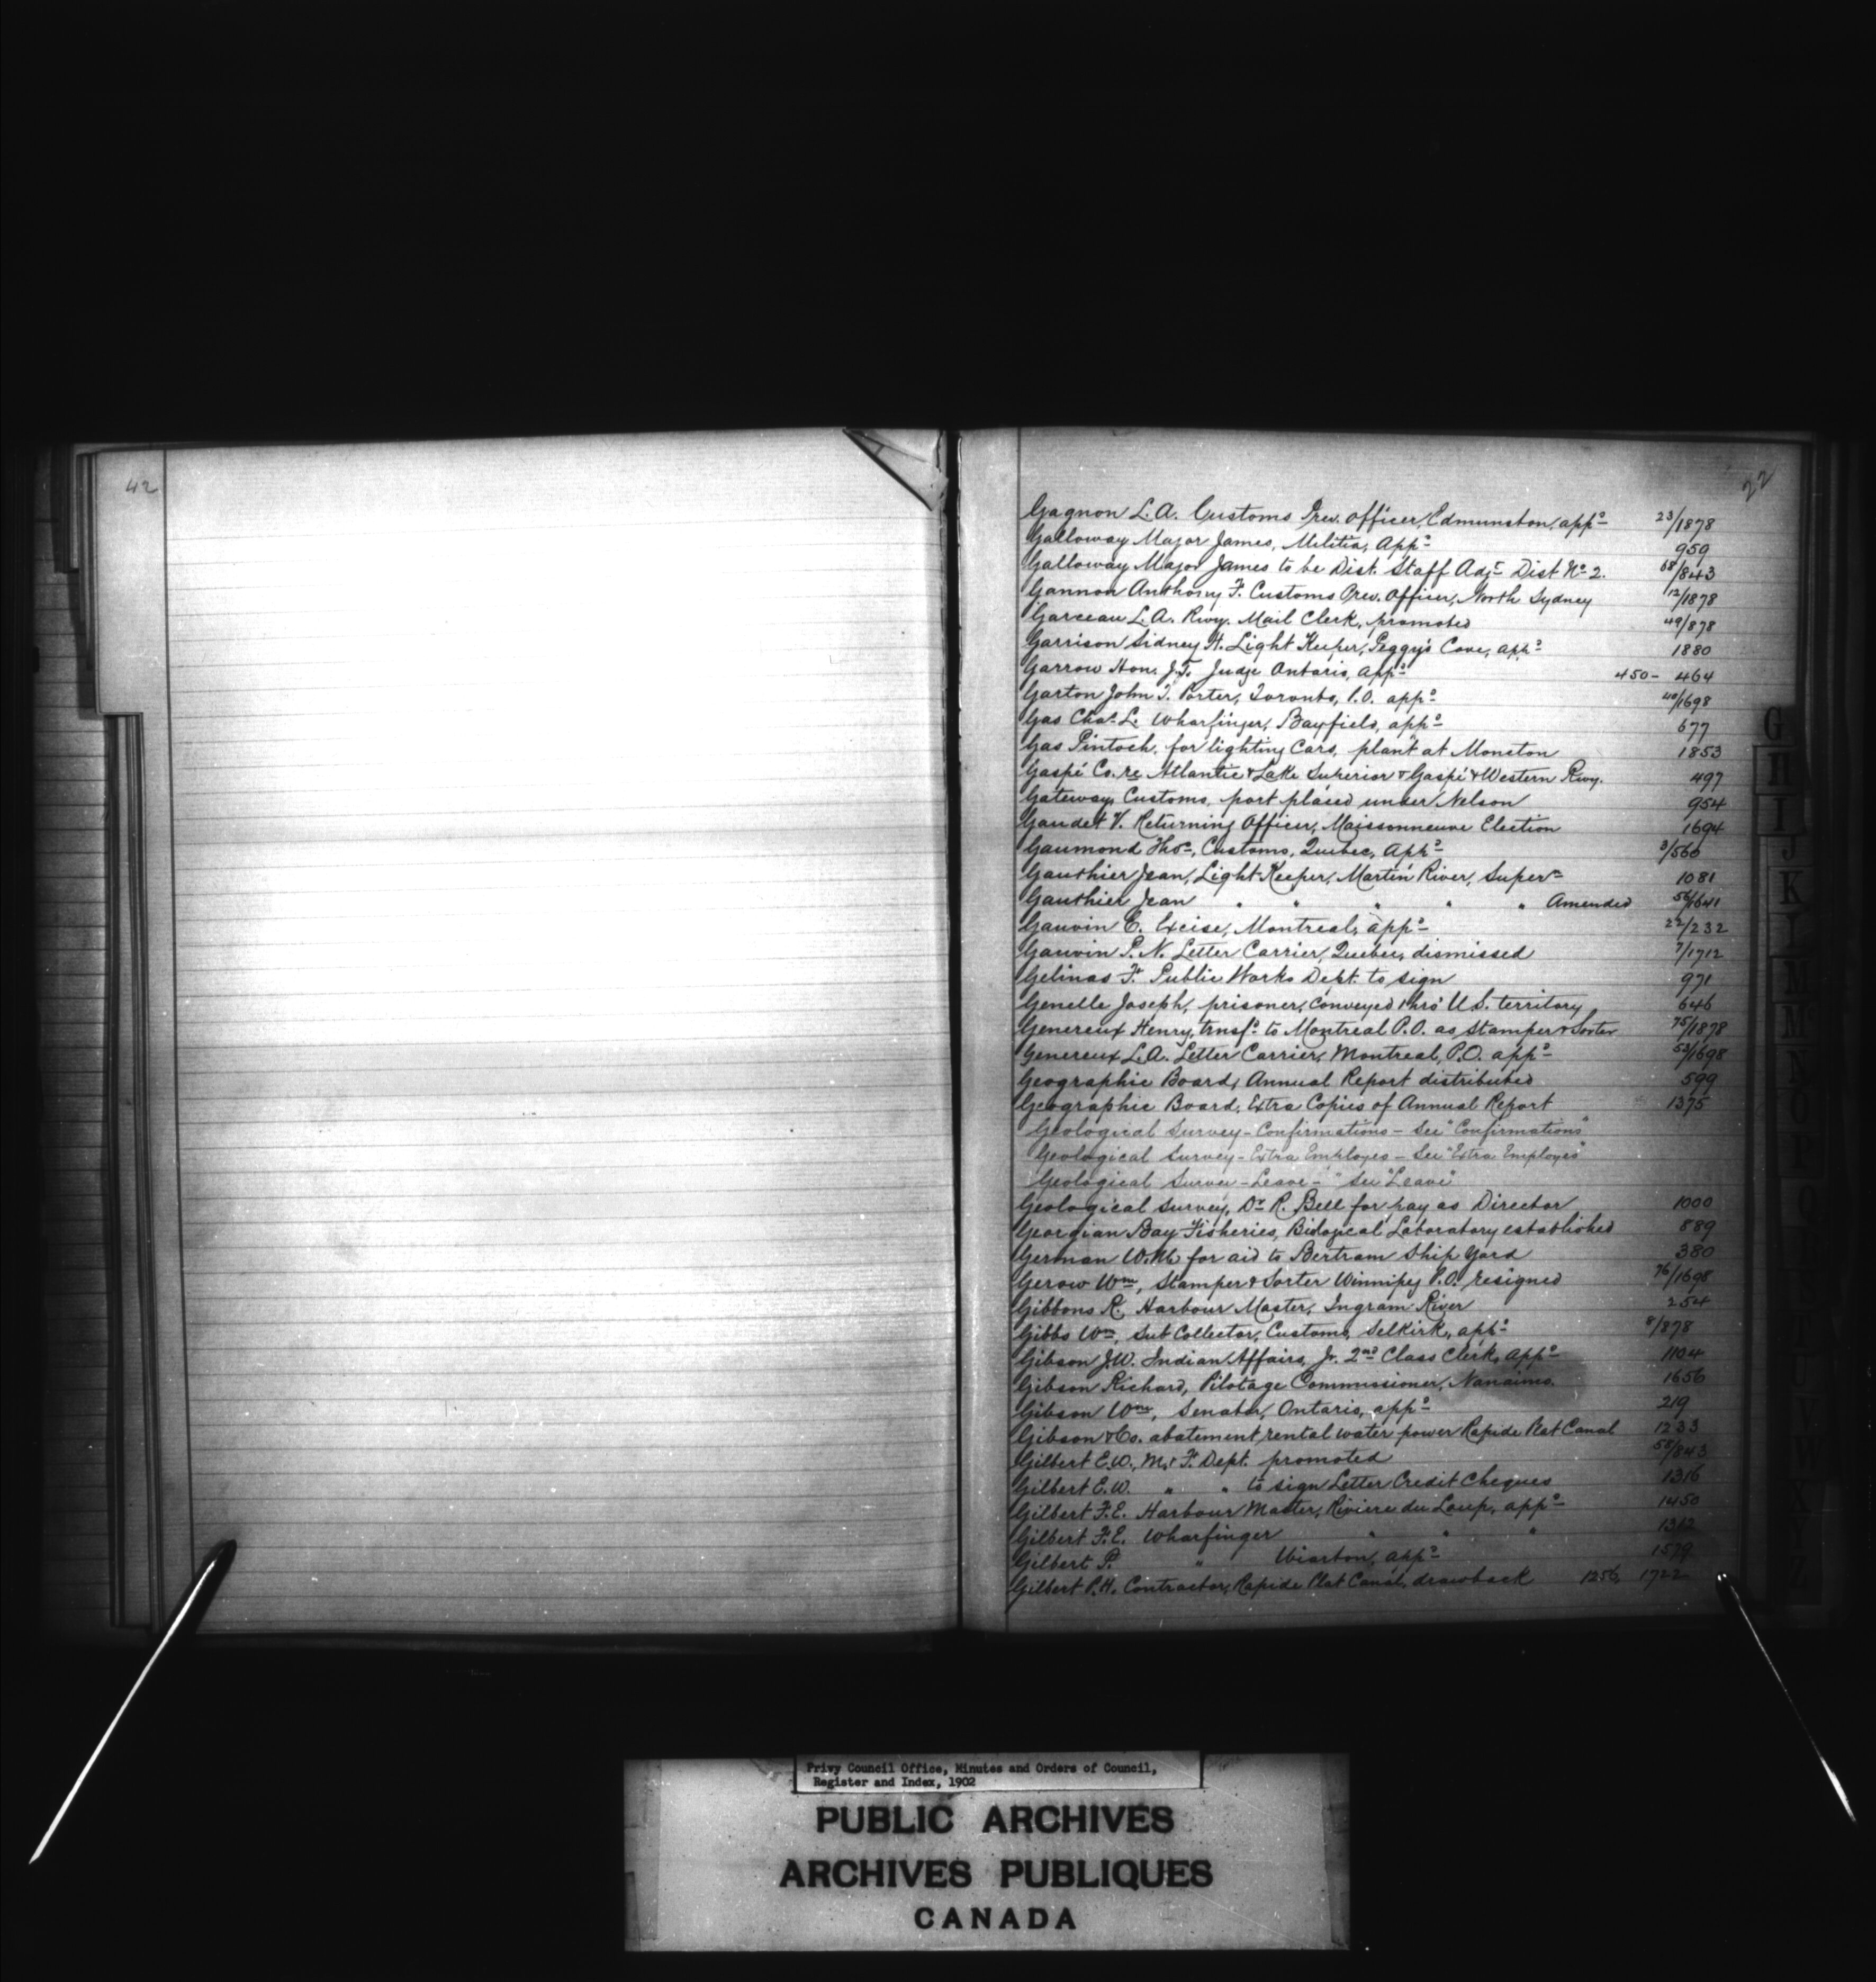 42
22
Gagnon L.A. Customs Prev. Officer, Edmunston, appᵗ 23/1878
Galloway Major James, Militia, Appᵗ 959
Galloway Major James to be Dist. Staff Adjᵗ Dist Nº 2. 68/843
Gannon Anthony F. Customs Prev. Officer, North Sydney 12/1878
Garceau L.A. Rwy. Mail Clerk, promoted 49/878
Garrison Sidney H. Light Keeper, Peggy's Cove, appᵗ 1880
Garrow Hon. J.T. Judge Ontario, appᵗ 450 - 464
Garton John T. Porter, Toronto, P.O. appᵗ 40/1698
Gas Chaˢ L. Wharfinger, Bayfield, appᵗ 677
Gas Pintsch, for lighting Cars, plant at Moncton 1853
Gaspé Co. re Atlantic & Lake Superior & Gaspé & Western Rwy. 497
Gateway, Customs, port placed under Nelson 954
Gaudet V. Returning Officer, Maissonneuve Election 1694
Gaumond Thoˢ, Customs, Quebec, Appᵗ 3/560
Gauthier Jean, Light Keeper, Martin River, Superⁿ 1081
Gauthier Jean " " " " " Amended 56/1641
Gauvin E. Excise, Montreal, appᵗ 22/232
Gauvin P.N. Letter Carrier, Quebec, dismissed 7/1712
Gelinas F. Public Works Dept. to sign 971
Genelle Joseph, prisoner, conveyed thro' U.S. territory 646
Genereux Henry, trnsfᵈ to Montreal P.O. as Stamper & Sorter 75/1878
Genereux L.A. Letter Carrier, Montreal, P.O. appᵗ 53/1698
Geographic Board, Annual Report distributed 599
Geographic Board, Extra Copies of Annual Report 1375
Geological Survey - Confirmations - See "Confirmations"
Geological Survey - Extra Employes - See "Extra Employes"
Geological Survey - Leave - " See "Leave"
Geological Survey, Dʳ R. Bell for pay as Director 1000
Georgian Bay Fisheries, Biological Laboratory established 889
German W.M. for aid to Bertram Ship Yard 380
Gerow Wᵐ, Stamper & Sorter Winnipeg P.O. resigned 76/1698
Gibbons R. Harbour Master, Ingram River 254
Gibbs Wᵐ, Sub Collector, Customs, Selkirk, appᵗ 8/878
Gibson J.W. Indian Affairs, Jr. 2ⁿᵈ Class Clerk, appᵗ 1104
Gibson Richard, Pilotage Commissioner, Nanaimo. 1656
Gibson Wᵐ, Senator, Ontario, appᵗ 219
Gibson & Co. abatement rental water power Rapide Plat Canal 1233
Gilbert E.W., M. & F. Dept. promoted 58/843
Gilbert E.W. " " to sign Letter Credit Cheques 1316
Gilbert F.E. Harbour Master, Riviere du Loup, appᵗ 1450
Gilbert F.E. Wharfinger " " " 1312
Gilbert P. " Wiarton, appᵗ 1579
Gilbert P.H. Contractor, Rapide Plat Canal, drawback 1256, 1722
G
H
I
J
K
M
Privy Council Office, Minutes and Orders of Council,
Register and Index, 1902
PUBLIC ARCHIVES
ARCHIVES PUBLIQUES
CANADA